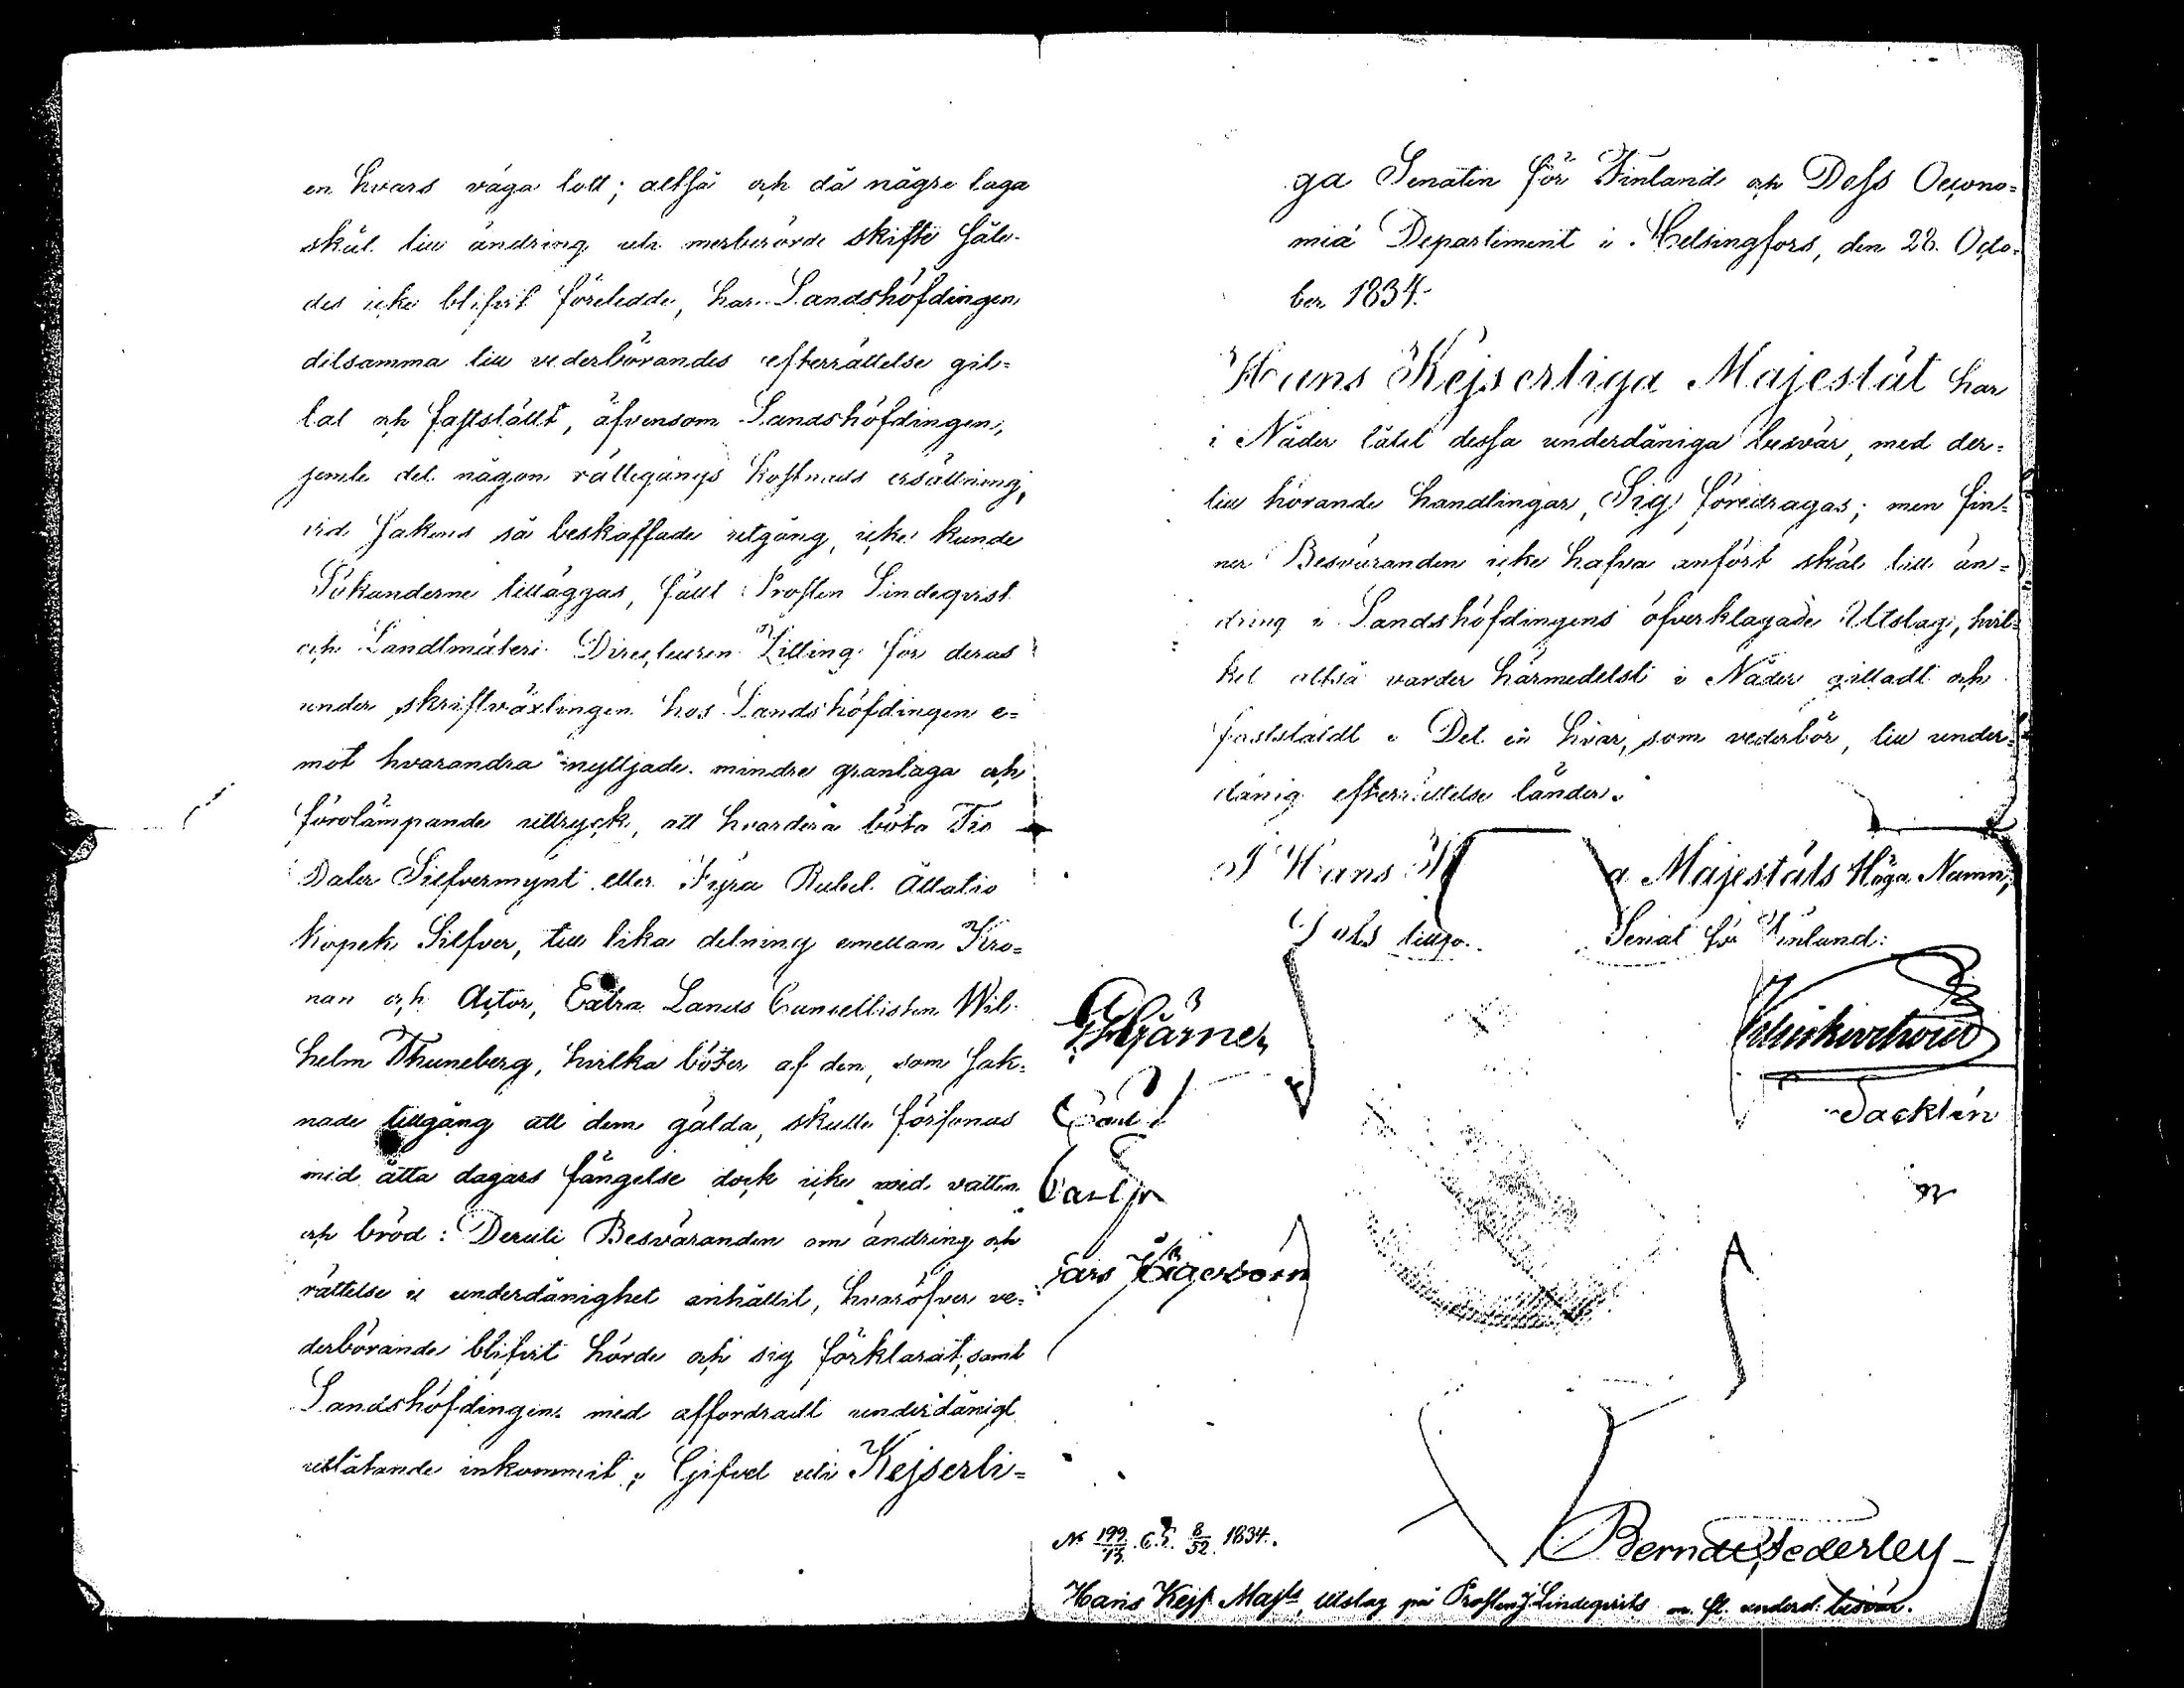 en hvars våga lott; altså och då någre laga
skäl till ändring uti merberörde skifte såle-
des icke blifvit föreledde, har Landshöfdingen
detsamma till vederbörandes efterrättelse gil-
lat och fastställt, äfvensom Landshöfdingen,
jemte det någon rättegångs kostnads ersättning,
vid sakens så beskaffade utgång, icke kunde
Sökanderne tilläggas, fällt Prosten Lindeqvist
och Landtmäteri Directeuren Zilling för deras
under skriftväxlingen hos Landshöfdingen e=
mot hvarandra nyttjade mindre granlaga och
förolämpande uttryck, att hvardera böta Tio
Daler Silfvermynt eller Fyra Rubel Åttatio
Kopek Silfver, till lika delning emellan Kro=
nan och Actor, Extra Lands Cancellisten Wil-
helm Thuneberg, hvilka böter af den, som sak=
nade tillgång att dem gälda, skulle försonas
med åtta dagars fängelse dock icke wid vatten
och bröd: Deruti Besväranden om ändring och
rättelse i underdånighet anhållit, hvaröfver ve=
derbörande blifvit hörde och sig förklarat, samt
Landshöfdingen med affordradt underdånigt
utlåtande inkommit; Gifvet uti Kejserli=
ga Senaten för Finland och Dess Oecono=
mie Departement i Helsingfors, den 28. Octo-
ber 1834.
Hans Kejserliga Majestät har
i Nåder låtit dessa underdåniga besvär, med der=
till hörande handlingar, Sig föredragas; men fin=
ner Besväranden icke hafva anfört skäl till än=
dring i Landshöfdingens öfverklagade Utslag, hvil=
ket altså varder härmedelst i Nåder gilladt och
faststäldt. Det en hvar, som vederbör, till under=
dånig efterrättelse länder.
I Hans K a Majestäts Höga Namn,
Dess tillfö. Senat för Finland:
G Hjärne
Falck
Carl
Lars Sacklén
Berndt Federley
No 199/73. C.E. 8/52. 1834.
Hans Kejs Majts, Utslag på Prosten J Lindeqvists m. fl. underd. besvär.